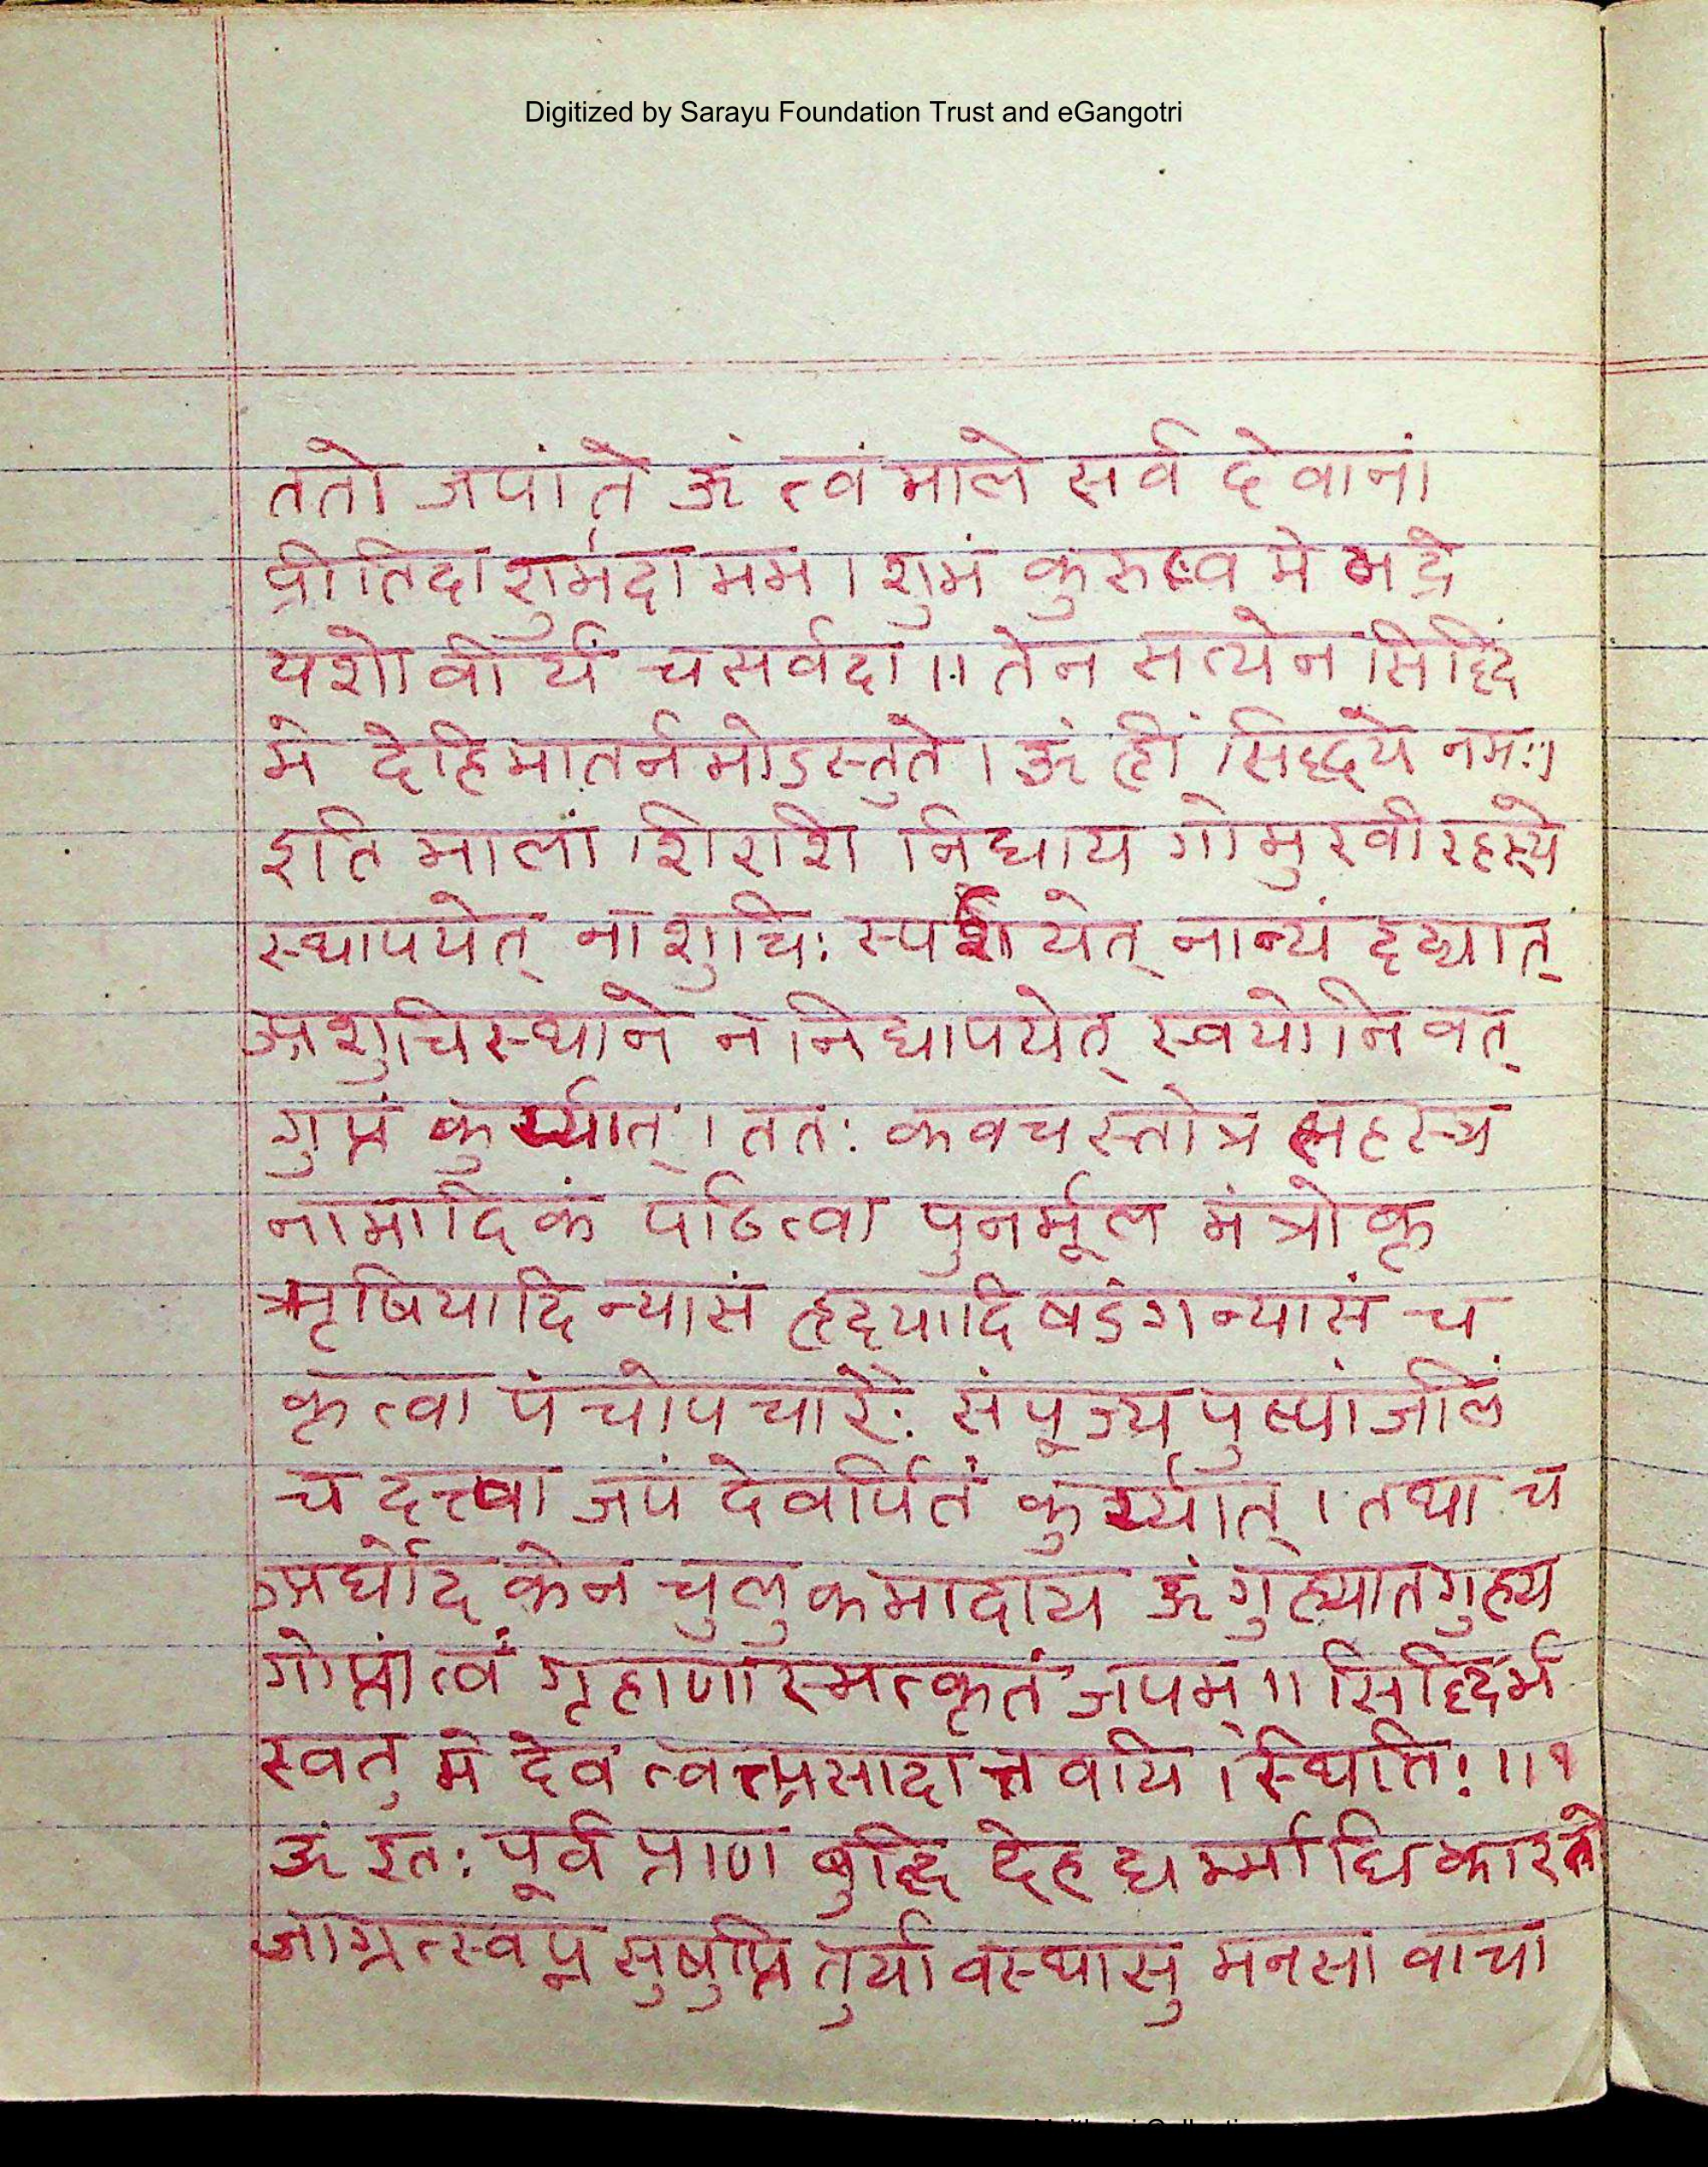 Digitized by Sarayu Foundation Trust and eGangotri
ततो जपांते ऊं त्वं माले सर्व देवानां
प्रीतिदा शुर्मदा मम । शुभं कुरुष्व मे भद्रे
यशो वीर्यं च सर्वदा ॥ तेन सत्येन सिद्धिं
मे देहि मातर्नमोऽस्तुते । ऊं ह्रीं सिद्ध्यै नमः ।
इति मालां शिरशि निधाय गोमुखी रहस्ये
स्थापयेत् नाशुचिः स्पर्शयेत् नान्यं दृद्यात्
अशुचिस्थाने न निधापयेत् स्वयोनिवत्
गुप्तं कुर्य्यात् । ततः कवच स्तोत्र सहस्त्र
नामादिकं पठित्वा पुनर्मूल मंत्रोक्त
ऋषियादि न्यासं हृदयादि षडंग न्यासं च
कृत्वा पंचोपचारैः संपूज्य पुष्पांजलिं
च दत्त्वा जपं देवार्पितं कुर्य्यात् । तथा च
अर्घोदकेन चुलुकमादाय ऊं गुह्यातगुह्य
गोप्ता त्वं गृहाणास्मत्कृतं जपम् ॥ सिद्धिर्भ
स्वतु मे देव त्वत्प्रसादात्तवयि स्थितिः ॥ १
ऊं इतः पूर्वं प्राण बुद्धि देह धर्म्माधिकारतो
जाग्रत्स्वप्न सुषुप्ति तुर्यावस्थासु मनसा वाचा